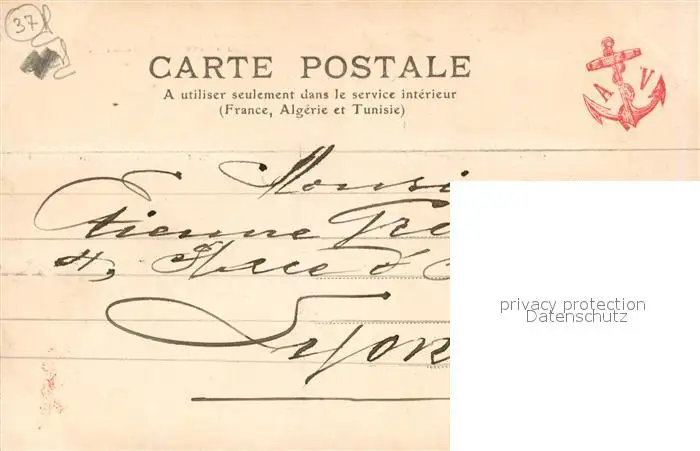 37
CARTE POSTALE
A utiliser seulement dans le service intérieur
(France, Algérie et Tunisie)
A V
Etienne
4,
Lyon
privacy protection
Datenschutz